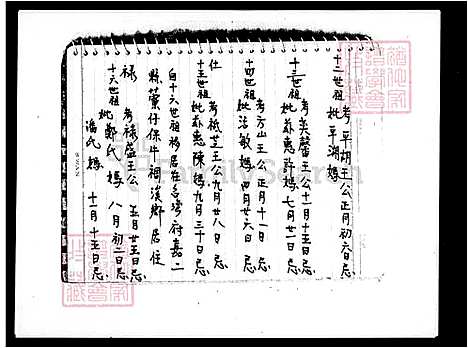 十二世祖 考平胡王公正月初六日忌
妣平湖媽
十三世祖 考美馨王公十一月十三日忌
妣慈惠許媽七月廿一日忌
十四世祖 考方山王公正月十一日忌
妣法敏媽四月廿六日忌
仕
十五世祖 考 芝王公九月廿八日忌
妣慈惠陳媽九月三十日忌
自十六世祖移居在台灣府嘉二
縣 仔保牛稠溪鄉居住
祿 考祿盛王公五月廿五日忌
十六世祖 妣鄭氏媽八月初二日忌
潘氏媽十二月十五日忌
FamilySearch